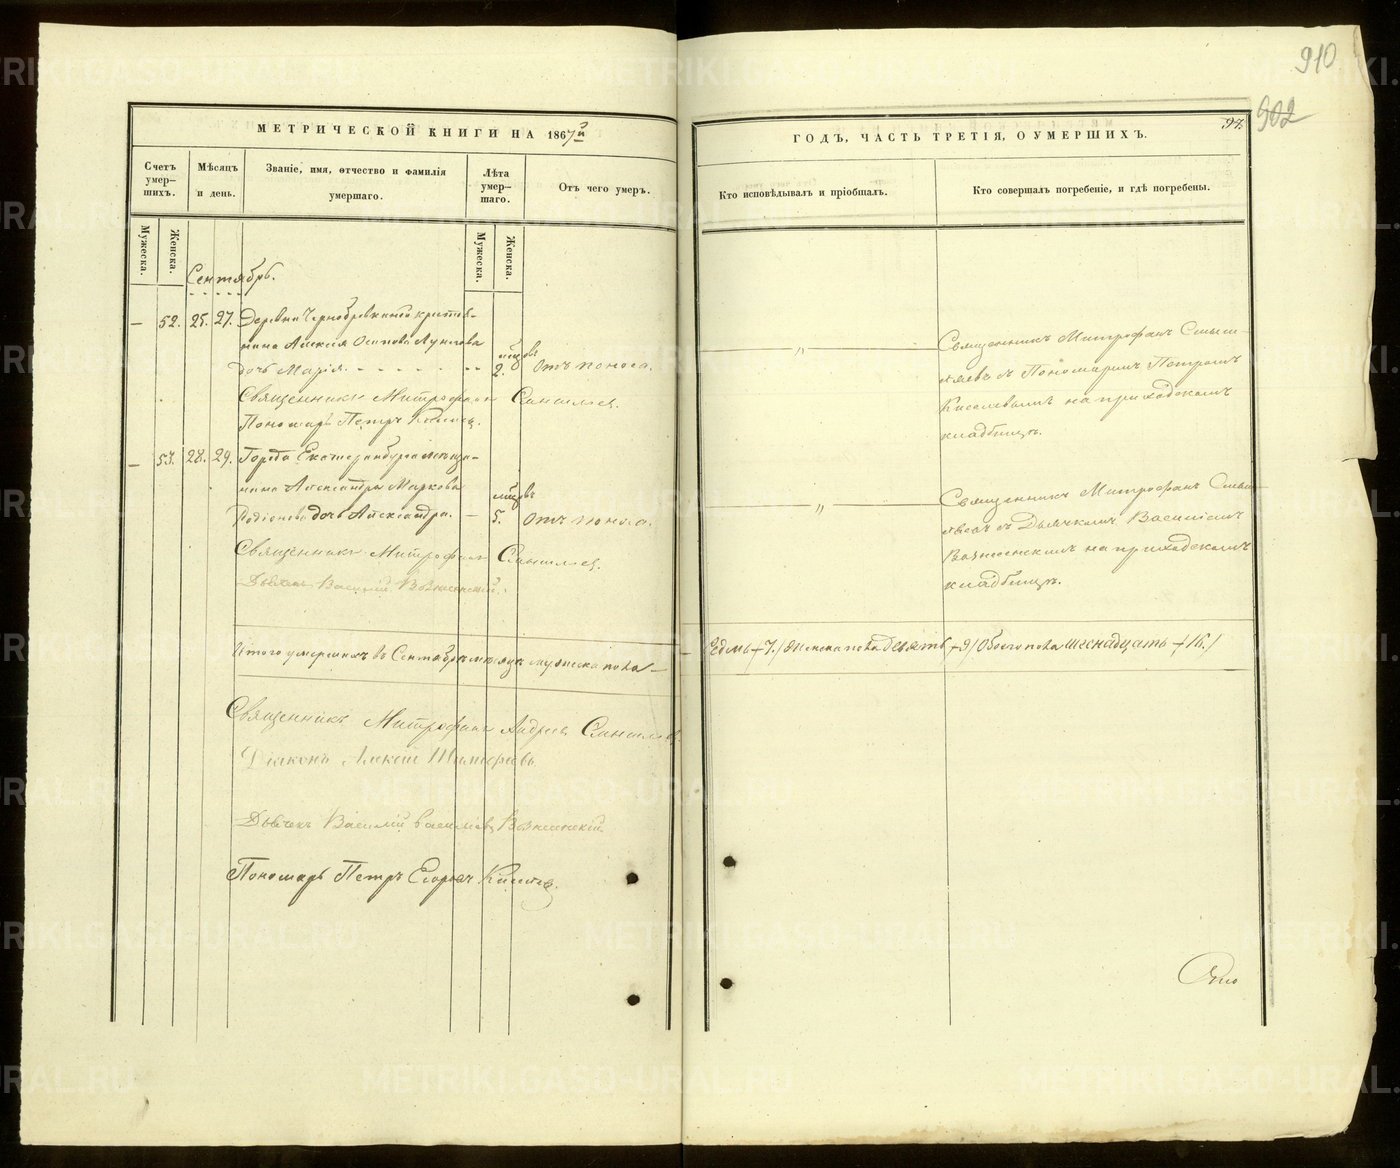 910
902
97.
МЕТРИЧЕСКОЙ КНИГИ НА 1867й
ГОДЪ, ЧАСТЬ ТРЕТІЯ, О УМЕРШИХЪ.
Счетъ умер-шихъ.
Мѣсяцъ и день.
Званіе, имя, отчество и фамилія умершаго.
Лѣта умер-шаго.
Отъ чего умеръ.
Кто исповѣдывалъ и пріобщалъ.
Кто совершалъ погребеніе, и гдѣ погребены.
Мужеска.
Женска.
Мужеска.
Женска.
Сентябрь.
— 52. 25. 27. Деревни крестья-
нина Алексія Осипова
дочь Марія. 2. мѣсяцовъ Отъ поноса.
Священникъ Митрофанъ
Пономарь Петръ
Священникъ Митрофанъ
съ Пономаремъ Петромъ
Киселевымъ на приходскомъ
кладбищѣ.
— 53. 28. 29. Города Екатеринбурга мѣща-
нина Александра Маркова
Родіонова дочь Александра. — 5. мѣсяцовъ Отъ поноса.
Священникъ Митрофанъ
Дьячекъ Василій Вознесенскій.
Священникъ Митрофанъ
съ Дьячкомъ Василіемъ
Вознесенскимъ на приходскомъ
кладбищѣ.
Итого умершихъ въ Сентябрѣ мѣсяцѣ мужеска пола —
седмь (7.) женска пола девять (9) Обоего пола шестнадцать (16.)
Священникъ Митрофанъ Андреевъ
Діаконъ Алексій
Дьячекъ Василій Васильевъ Вознесенскій
Пономарь Петръ Егоровъ
METRIKI.GASO-URAL.RU